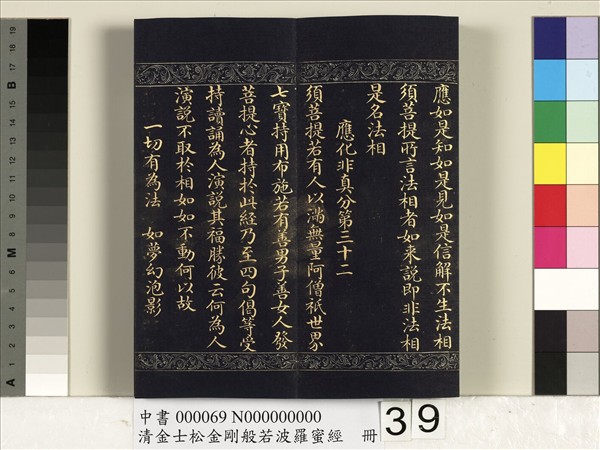 應如是知如是見如是信解不生法相
須菩提所言法相者如来説即非法相
是名法相
應化非真分第三十二
須菩提若有人以滿無量阿僧祇世界
七寶持用布施若有善男子善女人發
菩提心者持於此経乃至四句偈等受
持讀誦為人演説其福勝彼云何為人
演説不取於相如如不動何以故
一切有為法 如夢幻泡影
中書 000069 N000000000
清金士松金剛般若波羅蜜經 冊
39
A 1 2 3 4 5 6 M 8 9 10 11 12 13 14 15 B 17 18 19